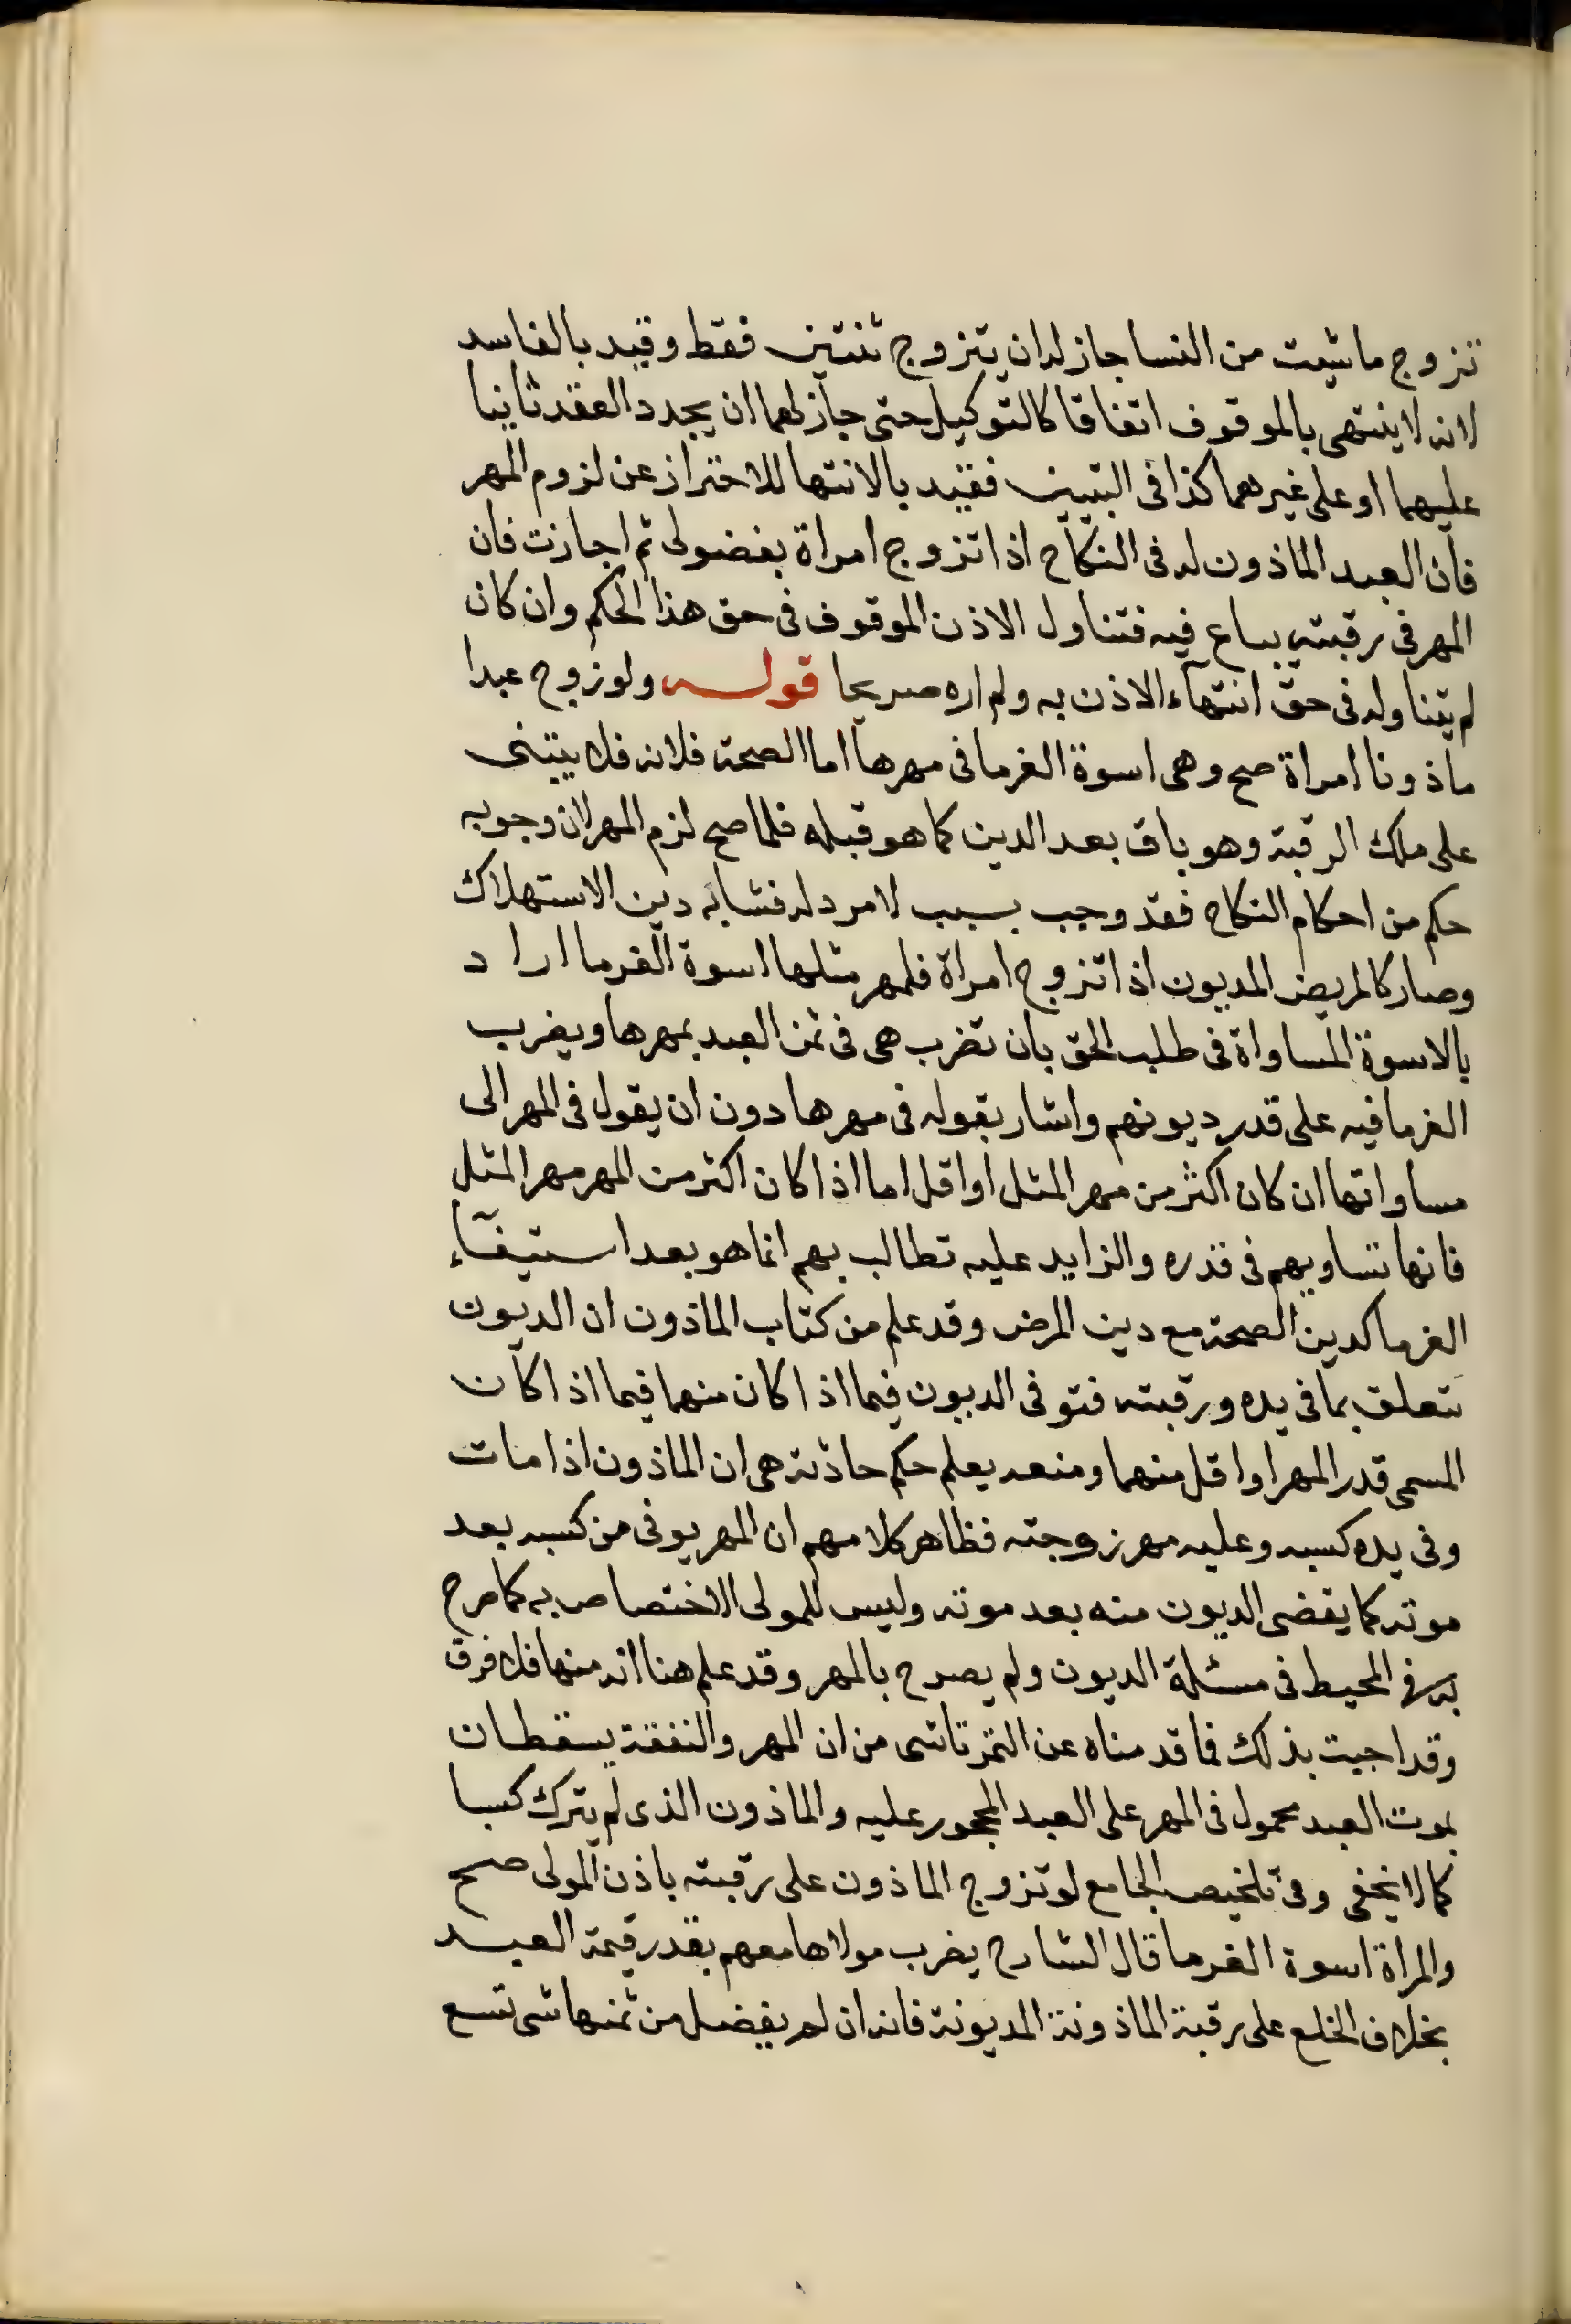 تزوج ماشيت من النسا جاز له ان يتزوج ثنتين فقط وقيد بالفاسد
لانه لا ينتهي بالموقوف اتفاقا كالتوكيل حتى جاز لهما ان يجدد العقد ثانيا
عليهما او على غيرهما كذا فى التبيين فقيد بالانتها للاحتراز عن لزوم المهر
فان العبد الماذون له فى النكاح اذا تزوج امراة بفضولى ثم اجازت فان
المهر فى رقبته يباع فيه فتناول الاذن الموقوف فى حق هذا الحكم وان كان
لم يتناوله فى حق انتهآء الاذن به ولم اره صريحا قوله ولو زوج عبدا
ماذونا امراة صح وهى اسوة الغرما فى مهرها اما الصحة فلانه فلا يبتنى
على ملك الرقبة وهو باق بعد الدين كما هو قبله فلما صح لزم المهر لان وجوبه
حكم من احكام النكاح فقد وجب بسبب لا مرد له فشابه دين الاستهلاك
وصار كالمريض المديون اذا تزوج امراة فلمهر مثلها اسوة الغرما اراد
بالاسوة المساواة فى طلب الحق بان تضرب هى فى ثمن العبد بمهرها ويضرب
الغرما فيه على قدر ديونهم واشار بقوله فى مهرها دون ان يقول فى المهر الى
مساواتها ان كان اكثر من مهر المثل او اقل اما اذا كان اكثر من المهر مهر المثل
فانها تساويهم فى قدره والزايد عليه تطالب بهم انما هو بعد استيفآء
الغرما كدين الصحة مع دين المرض وقد علم من كتاب الماذون ان الديون
تتعلق بما فى يده ورقبته فتوفى الديون فيما اذا كان منهما فيما اذا كان
المسمى قدر المهر او اقل منهما ومنعه يعلم حكم حادثة هى ان الماذون اذا مات
وفى يده كسبه وعليه مهر زوجته فظاهر كلامهم ان المهر يوفى من كسبه بعد
موته كما يقضى الديون منه بعد موته وليس للمولى الاختصاص به كما صرح
به فى المحيط فى مسئلة الديون ولم يصرح بالمهر وقد علم هنا انه منها فلا فرق
وقد اجبت بذلك فما قدمناه عن التمرتاشى من ان المهر والنفقة يسقطان
بموت العبد محمول فى المهر على العبد المحجور عليه والماذون الذى لم يترك كسبا
كما لا يخفى وفى تلخيص الجامع لو تزوج الماذون على رقبته باذن المولى صح
والمراة اسوة الغرما قال الشارح يضرب مولاها معهم بقدر قيمة العبد
بخلاف الخلع على رقبة الماذونة المديونة فانه ان لم يفضل من ثمنها شى تتبع